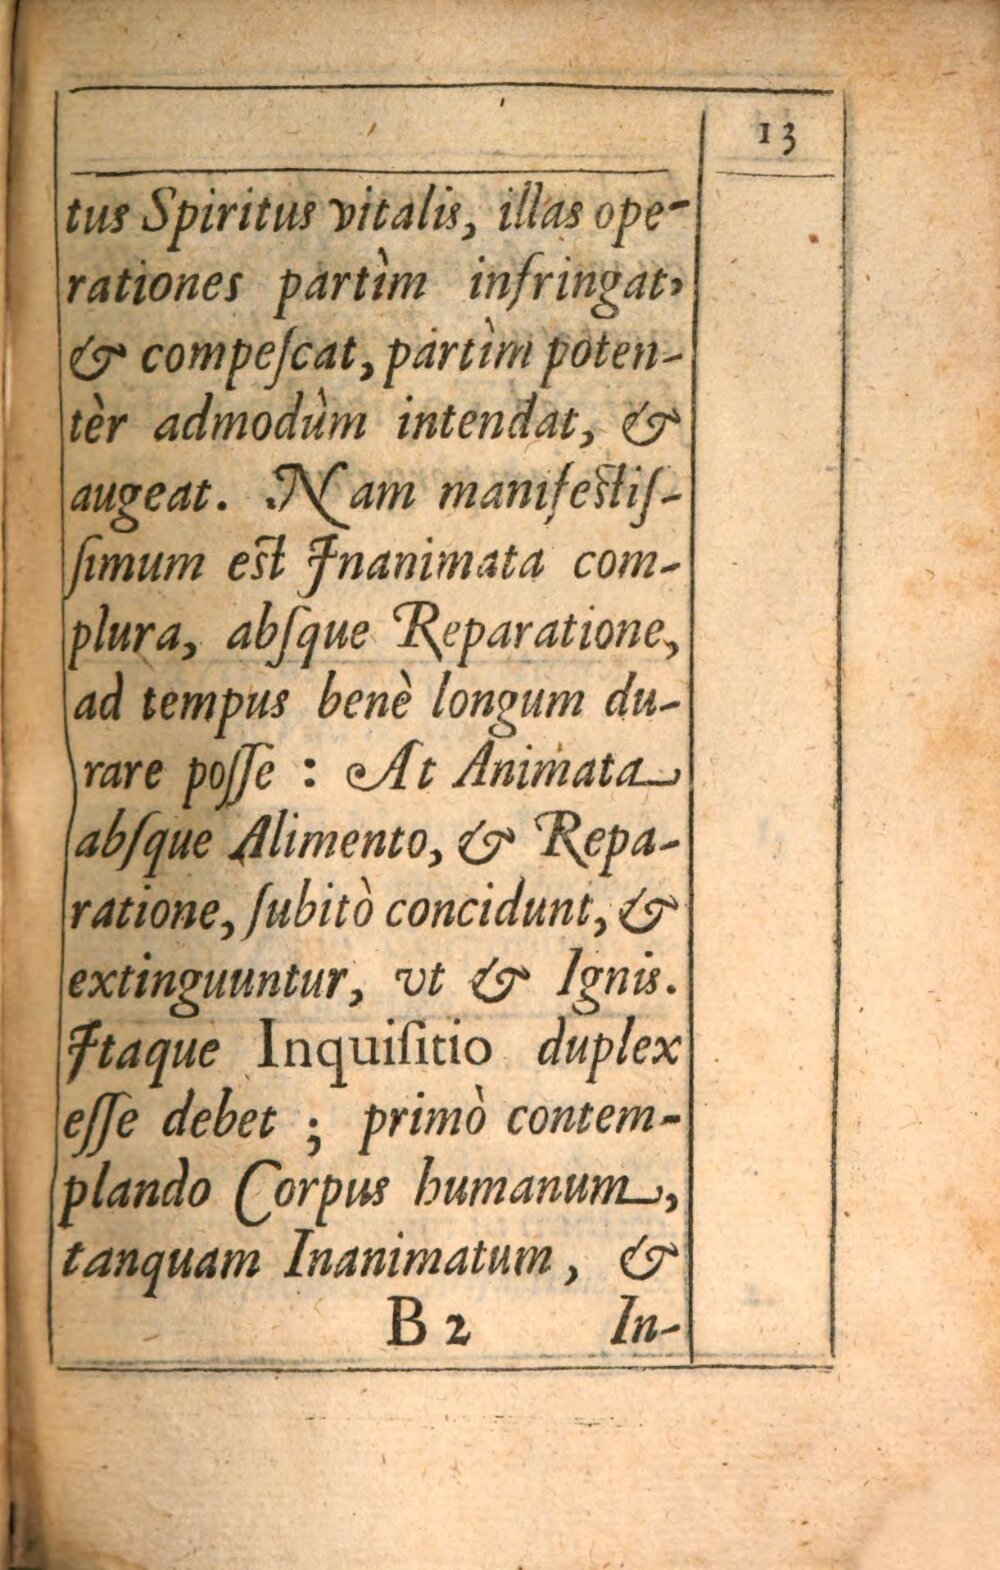 13
tus Spiritus vitalis, illas ope-
rationes partìm infringat,
& compeſcat, partìm poten-
tèr admodùm intendat, &
augeat. Nam manifeſtiſ-
ſimum eſt Inanimata com-
plura, abſque Reparatione,
ad tempus benè longum du-
rare poſſe : At Animata
abſque Alimento, & Repa-
ratione, ſubitò concidunt, &
extinguuntur, vt & Ignis.
Itaque Inquiſitio duplex
eſſe debet ; primò contem-
plando Corpus humanum,
tanquam Inanimatum, &
B 2 In-